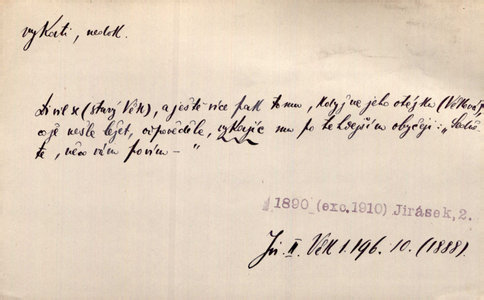 vykati, nedok.
Divil x (starý Věk), a ještě více pak tomu, když na jeho otázku (Věkovu),
co jě nešlo ležet, odpověděla, vykajíc mu po tehdejším obyčeji: „Sedně-
te, něco vám povím – “
1890 (exc.1910) Jirásek, 2.
Jir. II. Věk 1. 196. 10. (1888).